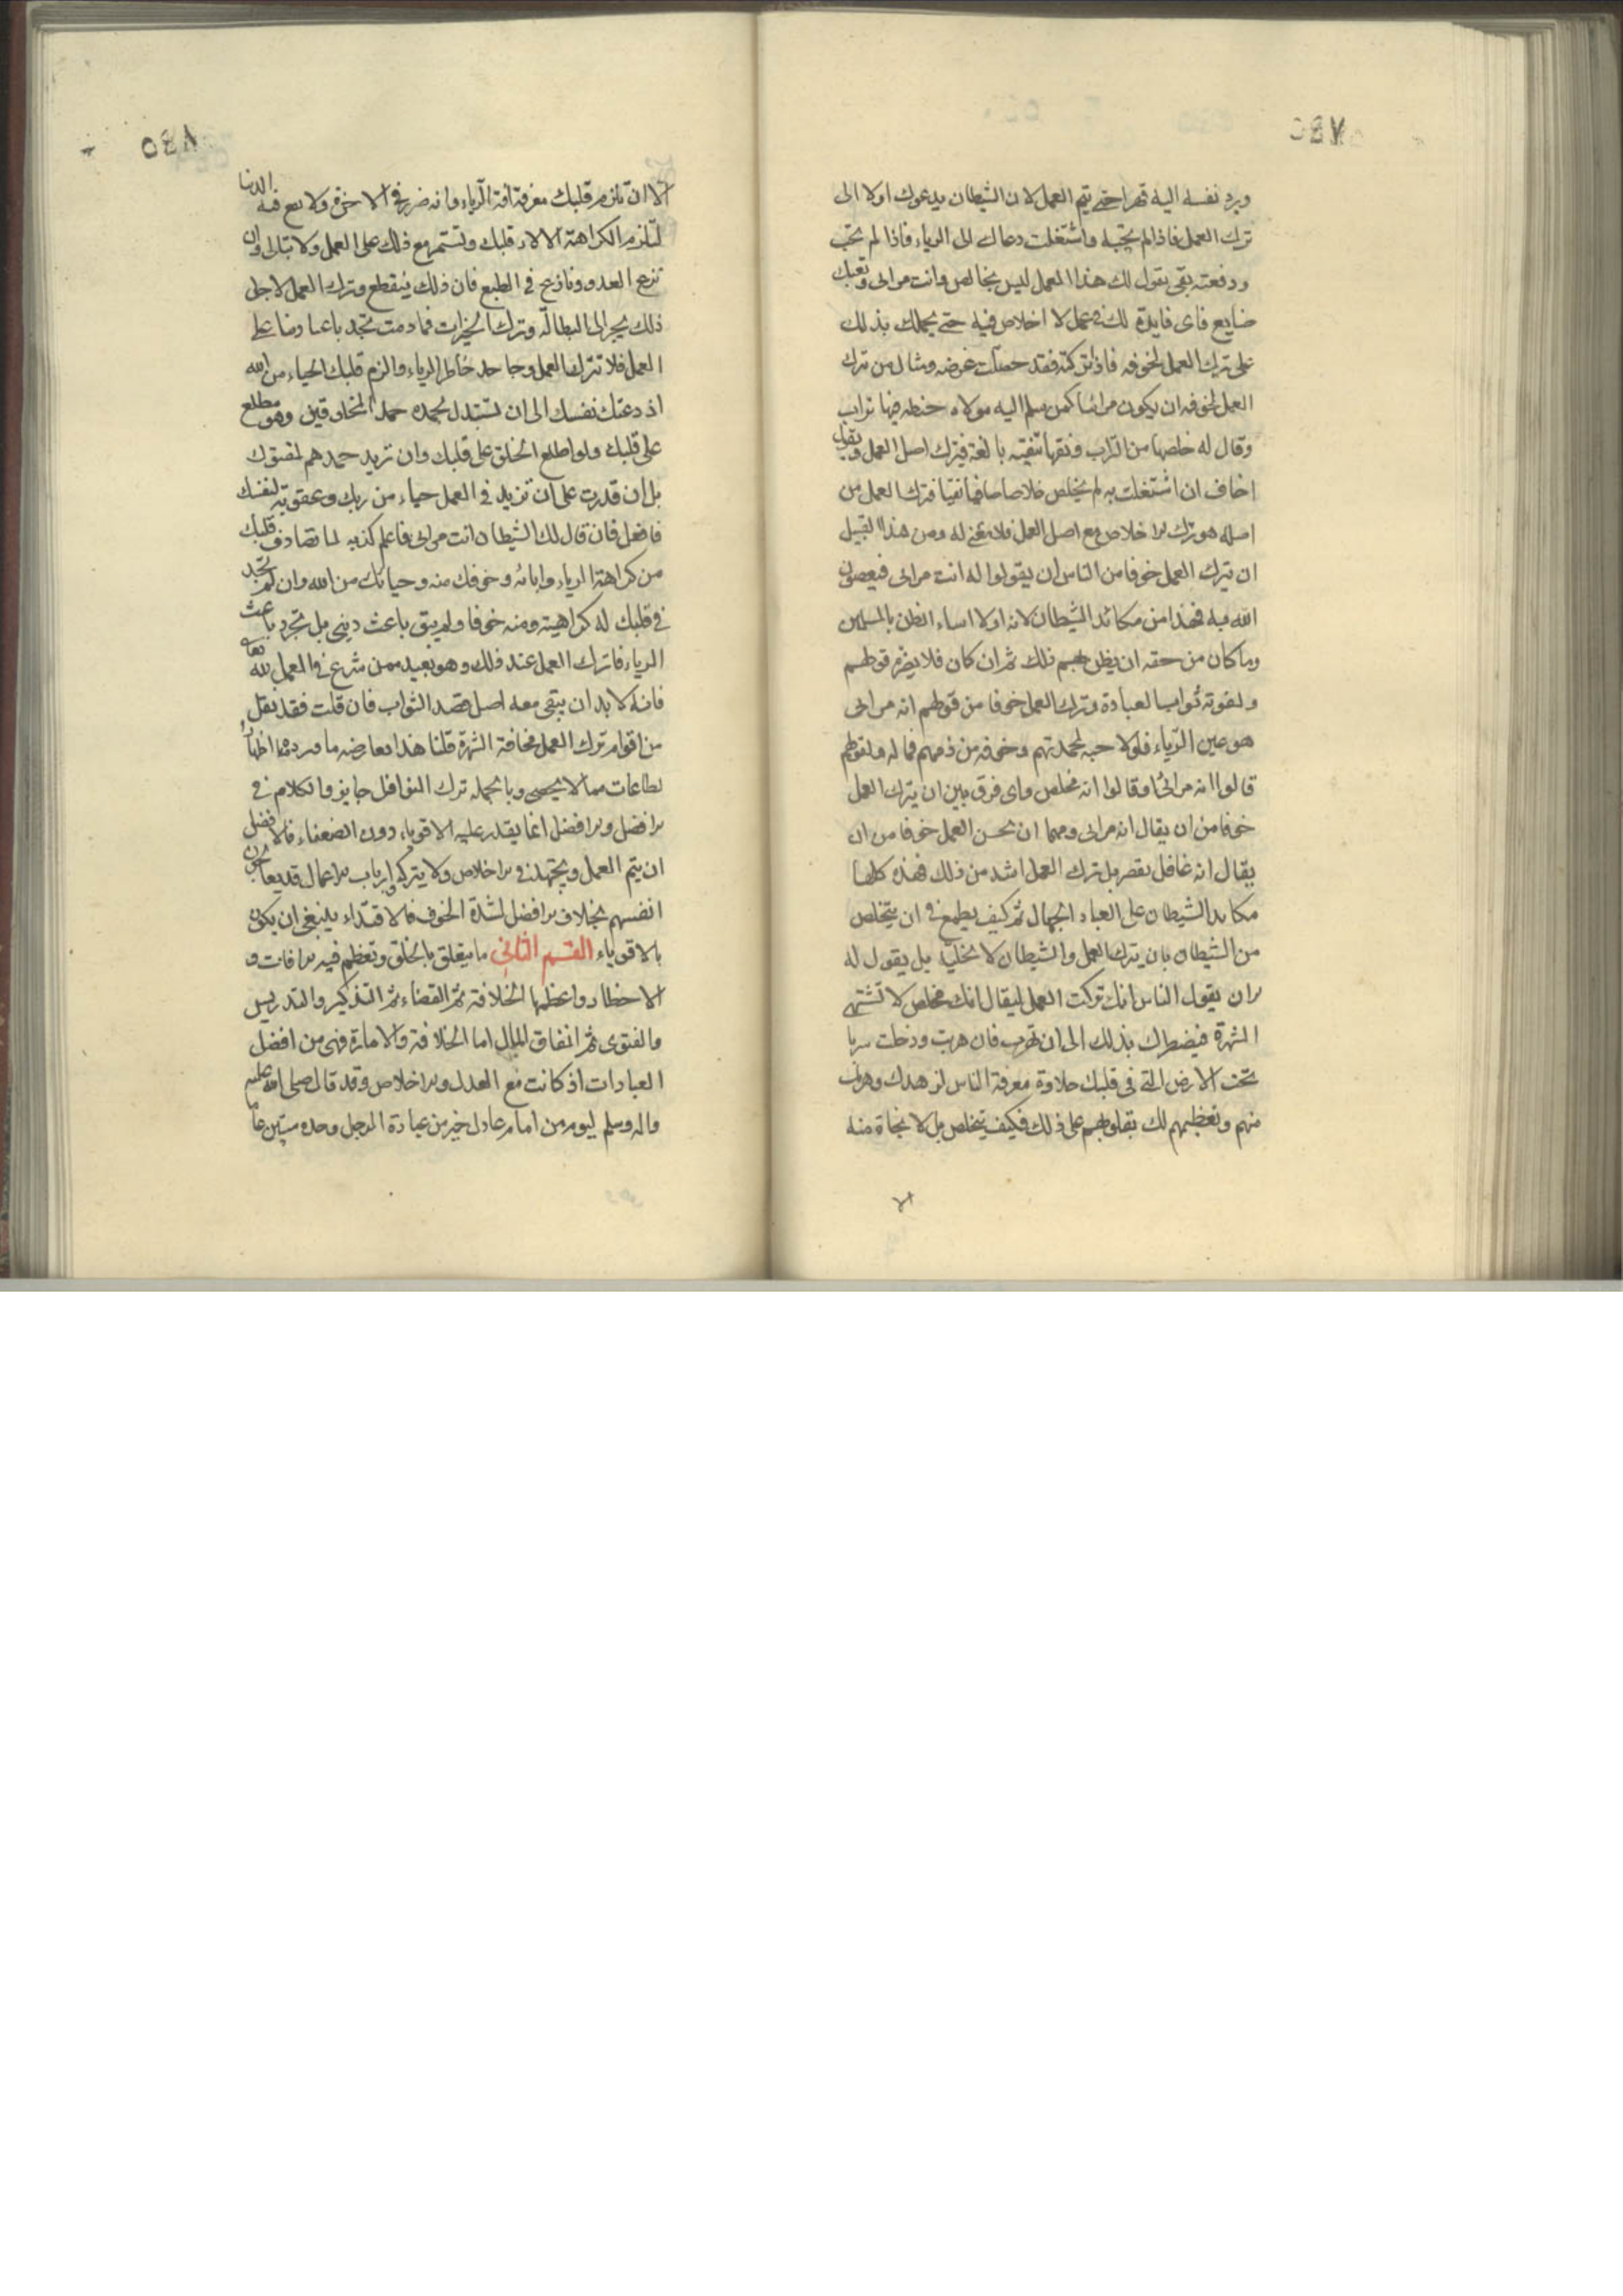 ٥٤٧
ويرد نفسه اليه قهرا حتى يتم العمل لان الشيطان يدعوك اولا الى
ترك العمل فاذا لم تجبه واشتغلت دعاك الى الرياء فاذا لم تجب
ودفعته بقى يقول لك هذا العمل ليس بخالص وانت مرائى وتعبك
ضايع فاى فايدة لك فى عمل لا اخلاص فيه حتى يحملك بذلك
على ترك العمل لخوفه فاذا تركته فقد حصلت غرضه ومثال من ترك
العمل لخوفه ان يكون مرائيا كمن سلم اليه مولاه حنطه فيها تراب
وقال له خلصها من التراب ونقها تنقيته بالغة فيترك اصل العمل ويقول
اخاف ان اشتغلت به لم يخلص خلاصا صافيا نقيا فترك العمل من
اصله هو ترك الاخلاص مع اصل العمل فلا معنى له ومن هذا القبيل
ان يترك العمل خوفا من الناس ان يقولوا له انت مرائى فيعصون
الله به فهذا من مكائد الشيطان لانه اولا اساء الظن بالمسلمين
وما كان من حقه ان يظن بهم ذلك ثم ان كان فلا يضره قولهم
ولفوته ثواب العبادة وترك العمل خوفا من قولهم انه مرائى
هو عين الرياء فلولا حبه لمحمدتهم وخوفه من ذمهم فما له ولقولهم
قالوا انه مرائى او قالوا انه مخلص واى فرق بين ان يترك العمل
خوفا من ان يقال انه مرائى ومهما ان يحسن العمل خوفا من ان
يقال انه غافل يقصر بل ترك العمل اشد من ذلك فهذه كلها
مكايد الشيطان على العباد الجهال ثم كيف يطمع فى ان يتخلص
من الشيطان بان يترك العمل والشيطان لا يخليه بل يقول له
الان يقول الناس انك تركت العمل ليقال انك مخلص لا تشتهى
الشهرة فيضطرك بذلك الى ان تهرب فان هربت ودخلت سربا
تحت الارض القى فى قلبك حلاوة معرفة الناس لزهدك وهربك
منهم وتعظيمهم لك بقلوبهم على ذلك فكيف يتخلص بل لا نجاة منه
الا
٥٤٨
الا ان تلزم قلبك معرفة افة الرياء وانه ضرر فى الاخرة ولا نفع فيه الدنيا
لتلزم الكراهة الاباء قلبك وتستمر مع ذلك على العمل ولا تبالى وان
نزع العدو ونازع فى الطبع فان ذلك ينقطع وترك العمل لاجل
ذلك يجر الى البطالة وترك الخيرات فما دمت تجد باعثا دينيا على
العمل فلا تترك العمل وجاهد خاطر الرياء والزم قلبك الحياء من الله
اذ دعتك نفسك الى ان تستبدل بحمده حمد المخلوقين وهو مطلع
على قلبك ولو اطلع الخلق على قلبك وان تريد حمدهم لمقتوك
بل ان قدرت على ان تزيد فى العمل حياء من ربك وعقوبة لنفسك
فافعل فان قال لك الشيطان انت مرائى فاعلم كذبه لما تصادف قلبك
من كراهة الرياء واباءه وخوفك منه وحيائك من الله وان لم تجد
فى قلبك له كراهية ومنه خوفا ولم يبق باعث دينى بل تجرد باعث
الرياء فاترك العمل عند ذلك وهو بعيد ممن شرع فى العمل لله تعالى
فانه لا بد ان يبقى معه اصل قصد الثواب فان قلت فقد نقل
من اقوام ترك العمل مخافة الشهرة قلنا هذا معارضه ما ورد من اظهار
لطاعات مما لا يحصى وبالجمله ترك النوافل جايز والكلام فى
الافضل والافضل انما يقدر عليه الاقوياء دون الضعفاء فالافضل
ان يتم العمل ويجتهد فى الاخلاص ولا يتركه وارباب الاعمال قد يعالجون
انفسهم بخلاف الافضل لشدة الخوف فالاقتداء ينبغى ان يكون
بالاقوياء القسم الثانى ما يتعلق بالخلق وتعظم فيه الافات و
الاخطار واعظمها الخلافة ثم القضاء ثم التذكير والتدريس
والفتوى ثم انفاق المال اما الخلافة والامارة فهى من افضل
العبادات اذ كانت مع العدل والاخلاص وقد قال صلى الله عليه
واله وسلم ليوم من امام عادل خير من عبادة الرجل وحده ستين عاما